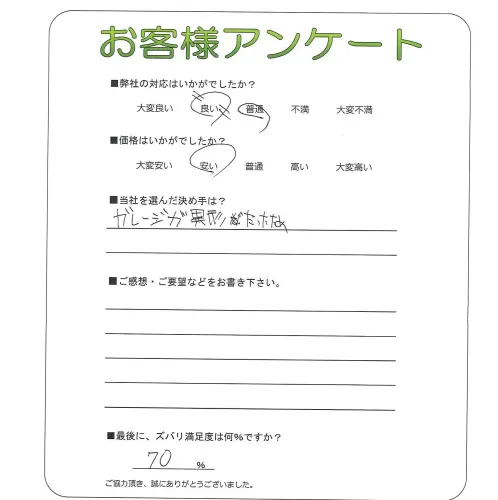 お客様アンケート
■弊社の対応はいかがでしたか？
大変良い 良い 普通 不満 大変不満
■価格はいかがでしたか？
大変安い 安い 普通 高い 大変高い
■当社を選んだ決め手は？
ガレージが異形だったため
■ご感想・ご要望などをお書き下さい。
■最後に、ズバリ満足度は何%ですか？
70 %
ご協力頂き、誠にありがとうございました。